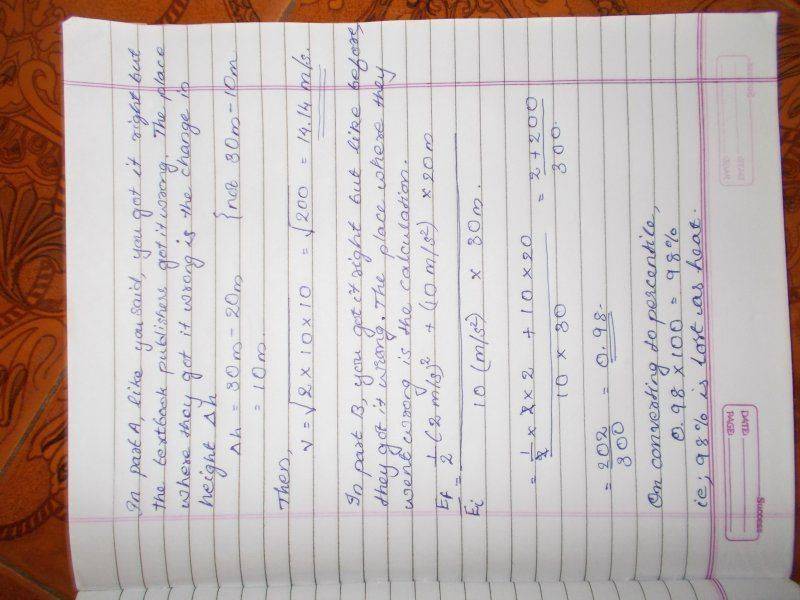 In part A, like you said, you got it right but
the textbook publishers got it wrong. The place
where they got it wrong is the change in
height Δh
Δh = 30m - 20m {not 30m - 10m
= 10m.
Then,
v = √2 × 10 × 10 = √200 = 14.14 m/s.
In part B, you got it right but like before,
they got it wrong. The place where they
went wrong is the calculation.
Ef/Ei = 1/2 (2 m/s)² + (10 m/s²) × 20m / 10 (m/s²) × 30 m.
= 1/2 × 2 × 2 + 10 × 20 / 10 × 30 = 2 + 200 / 300.
= 202/300 = 0.98.
On converting to percentile,
0.98 × 100 = 98%
ie; 98% is lost as heat.
Success
PAGE:
DATE: